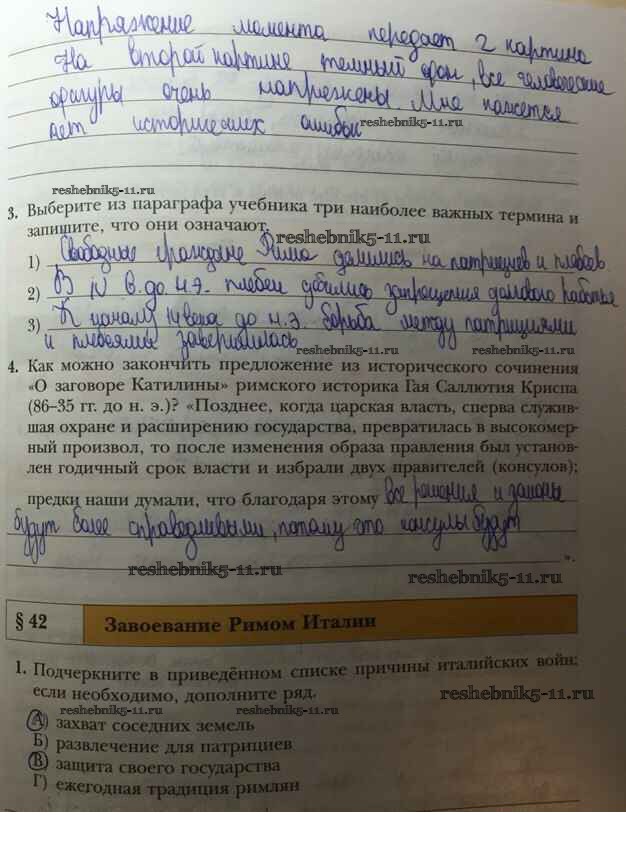 Напряжение момента передает 2 картина
На второй картине темный фон, все человеческие
фигуры очень напряжены. Мне кажется
нет исторических ошибок
reshebnik5-11.ru
reshebnik5-11.ru
3. Выберите из параграфа учебника три наиболее важных термина и
запишите, что они означают.
reshebnik5-11.ru
1) Свободные граждане Рима делились на патрициев и плебеев
2) В IV в. до н.э. плебеи добились запрещения долгового рабства
3) К началу века до н.э. борьба между патрициями
и плебеями завершилась
reshebnik5-11.ru reshebnik5-11.ru
4. Как можно закончить предложение из исторического сочинения
«О заговоре Катилины» римского историка Гая Саллюстия Криспа
(86–35 гг. до н. э.)? «Позднее, когда царская власть, сперва служив-
шая охране и расширению государства, превратилась в высокомер-
ный произвол, то после изменения образа правления был установ-
лен годичный срок власти и избрали двух правителей (консулов);
предки наши думали, что благодаря этому все решения и законы
будут более справедливыми, потому что консулы будут
».
reshebnik5-11.ru reshebnik5-11.ru
§ 42 Завоевание Римом Италии
1. Подчеркните в приведённом списке причины италийских войн;
если необходимо, дополните ряд.
reshebnik5-11.ru
reshebnik5-11.ru reshebnik5-11.ru
А) захват соседних земель
Б) развлечение для патрициев
В) защита своего государства
Г) ежегодная традиция римлян